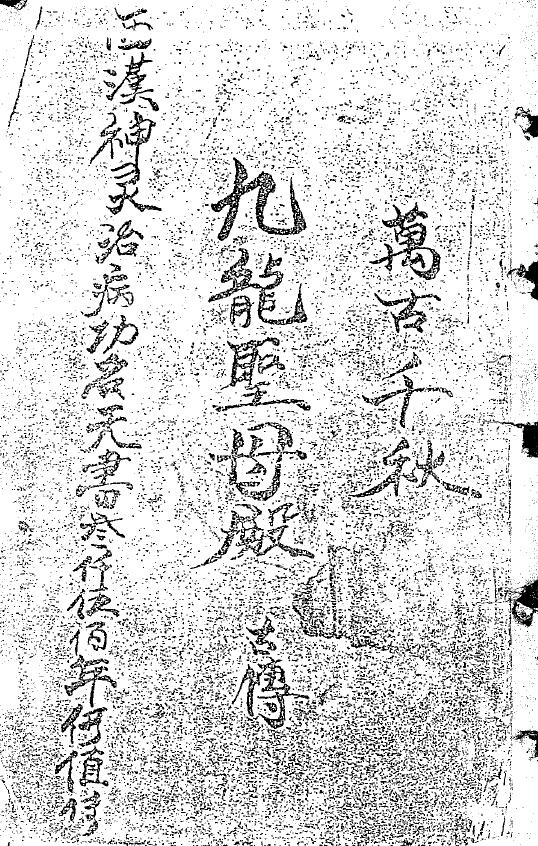 萬古千秋
九龍聖母殿 古傳
漢神灵治病功名天書叁仟伍佰年何值